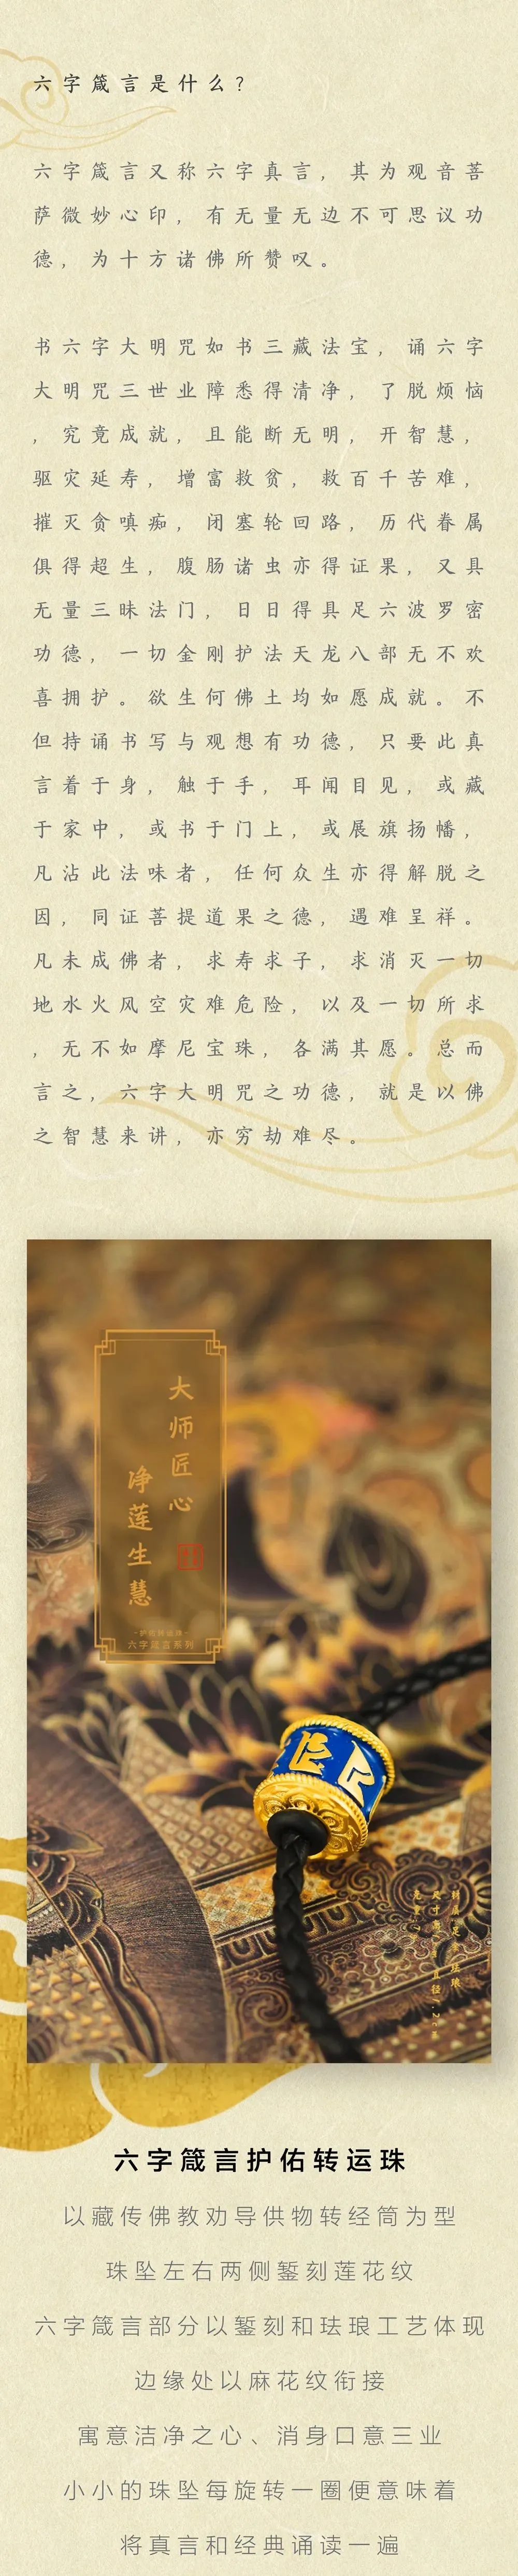 六字箴言是什么？
六字箴言又称六字真言，其为观音菩
萨微妙心印，有无量无边不可思议功
德，为十方诸佛所赞叹。
书六字大明咒如书三藏法宝，诵六字
大明咒三世业障悉得清净，了脱烦恼
，究竟成就，且能断无明，开智慧，
驱灾延寿，增富救贫，救百千苦难，
摧灭贪嗔痴，闭塞轮回路，历代眷属
俱得超生，腹肠诸虫亦得证果，又具
无量三昧法门，日日得具足六波罗密
功德，一切金刚护法天龙八部无不欢
喜拥护。欲生何佛土均如愿成就。不
但持诵书写与观想有功德，只要此真
言着于身，触于手，耳闻目见，或藏
于家中，或书于门上，或展旗扬幡，
凡沾此法味者，任何众生亦得解脱之
因，同证菩提道果之德，遇难呈祥。
凡未成佛者，求寿求子，求消灭一切
地水火风空灾难危险，以及一切所求
，无不如摩尼宝珠，各满其愿。总而
言之，六字大明咒之功德，就是以佛
之智慧来讲，亦穷劫难尽。
大师匠心
净莲生慧
-护佑转运珠-
六字箴言系列
六字箴言护佑转运珠
以藏传佛教劝导供物转经筒为型
珠坠左右两侧錾刻莲花纹
六字箴言部分以錾刻和珐琅工艺体现
边缘处以麻花纹衔接
寓意洁净之心、消身口意三业
小小的珠坠每旋转一圈便意味着
将真言和经典诵读一遍